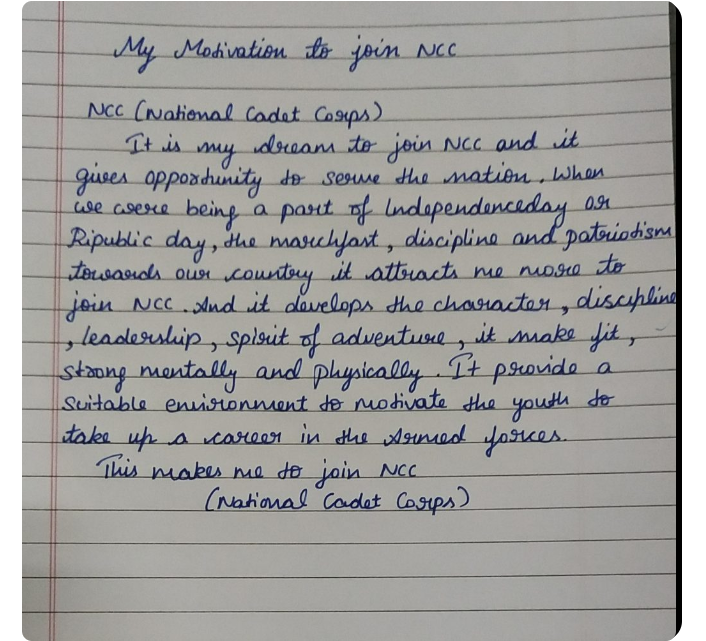 My Motivation to join NCC
NCC (National Cadet Corps)
It is my dream to join NCC and it
gives opportunity to serve the nation. When
we were being a part of Independenceday or
Ripublic day, the marchfast, discipline and patriotism
towards our country it attracts me more to
join NCC. And it develops the character, discipline
, leadership, spirit of adventure, it make fit,
strong mentally and physically. It provide a
suitable environment to motivate the youth to
take up a career in the Armed forces.
This makes me to join NCC
(National Cadet Corps)